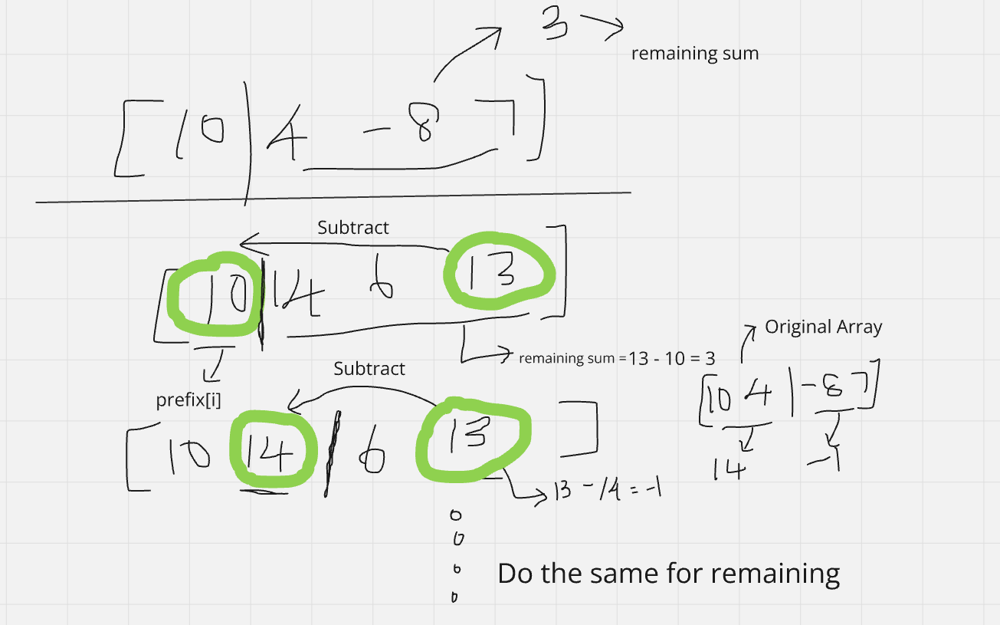 3
remaining sum
[ 10 | 4 - 8 7 ]
Subtract
[ 10 | 14 6 13 ]
remaining sum = 13 - 10 = 3
prefix[i]
Original Array
[10 4 | -8 7]
14 -1
Subtract
[ 10 14 | 6 13 ]
13 - 14 = -1
Do the same for remaining